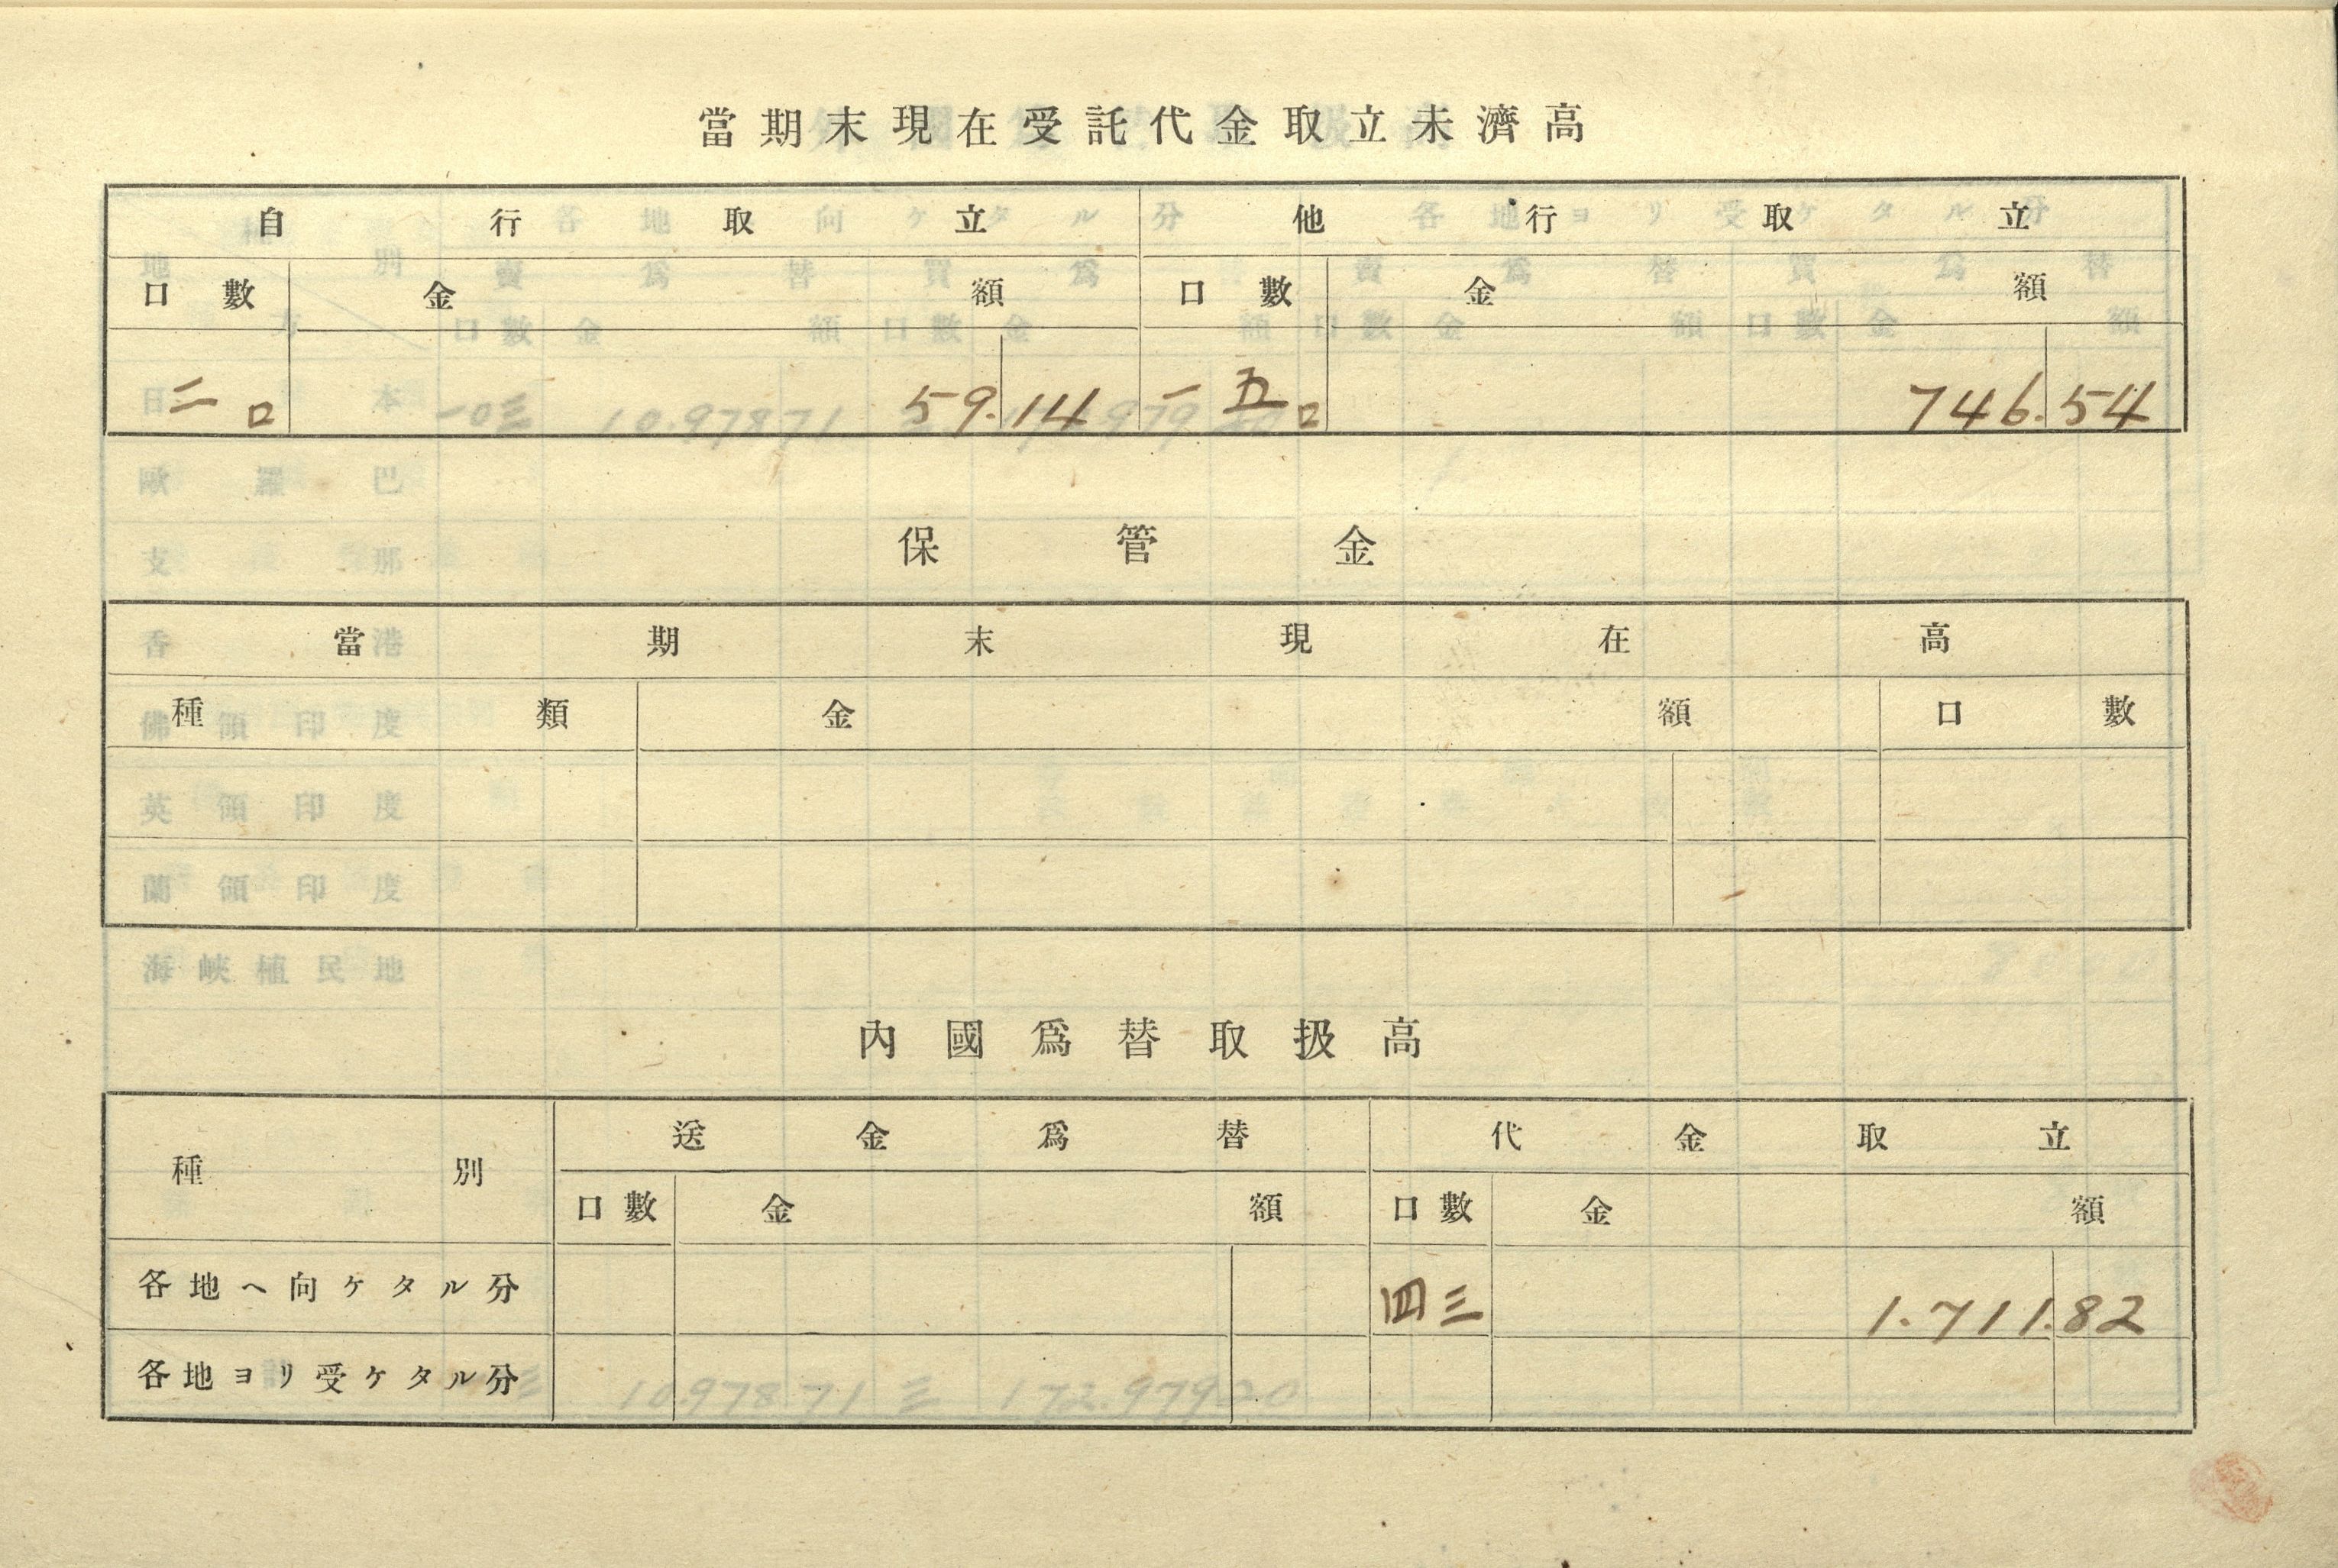 當期末現在受託代金取立未濟高
自行取立 他行取立
口數 金額 口數 金額
二口 59.14 一五口 746.54
保管金
當期末現在高
種類 金額 口數
內國爲替取扱高
種別 送金爲替 代金取立
口數 金額 口數 金額
各地ヘ向ケタル分 四三 1.711.82
各地ヨリ受ケタル分